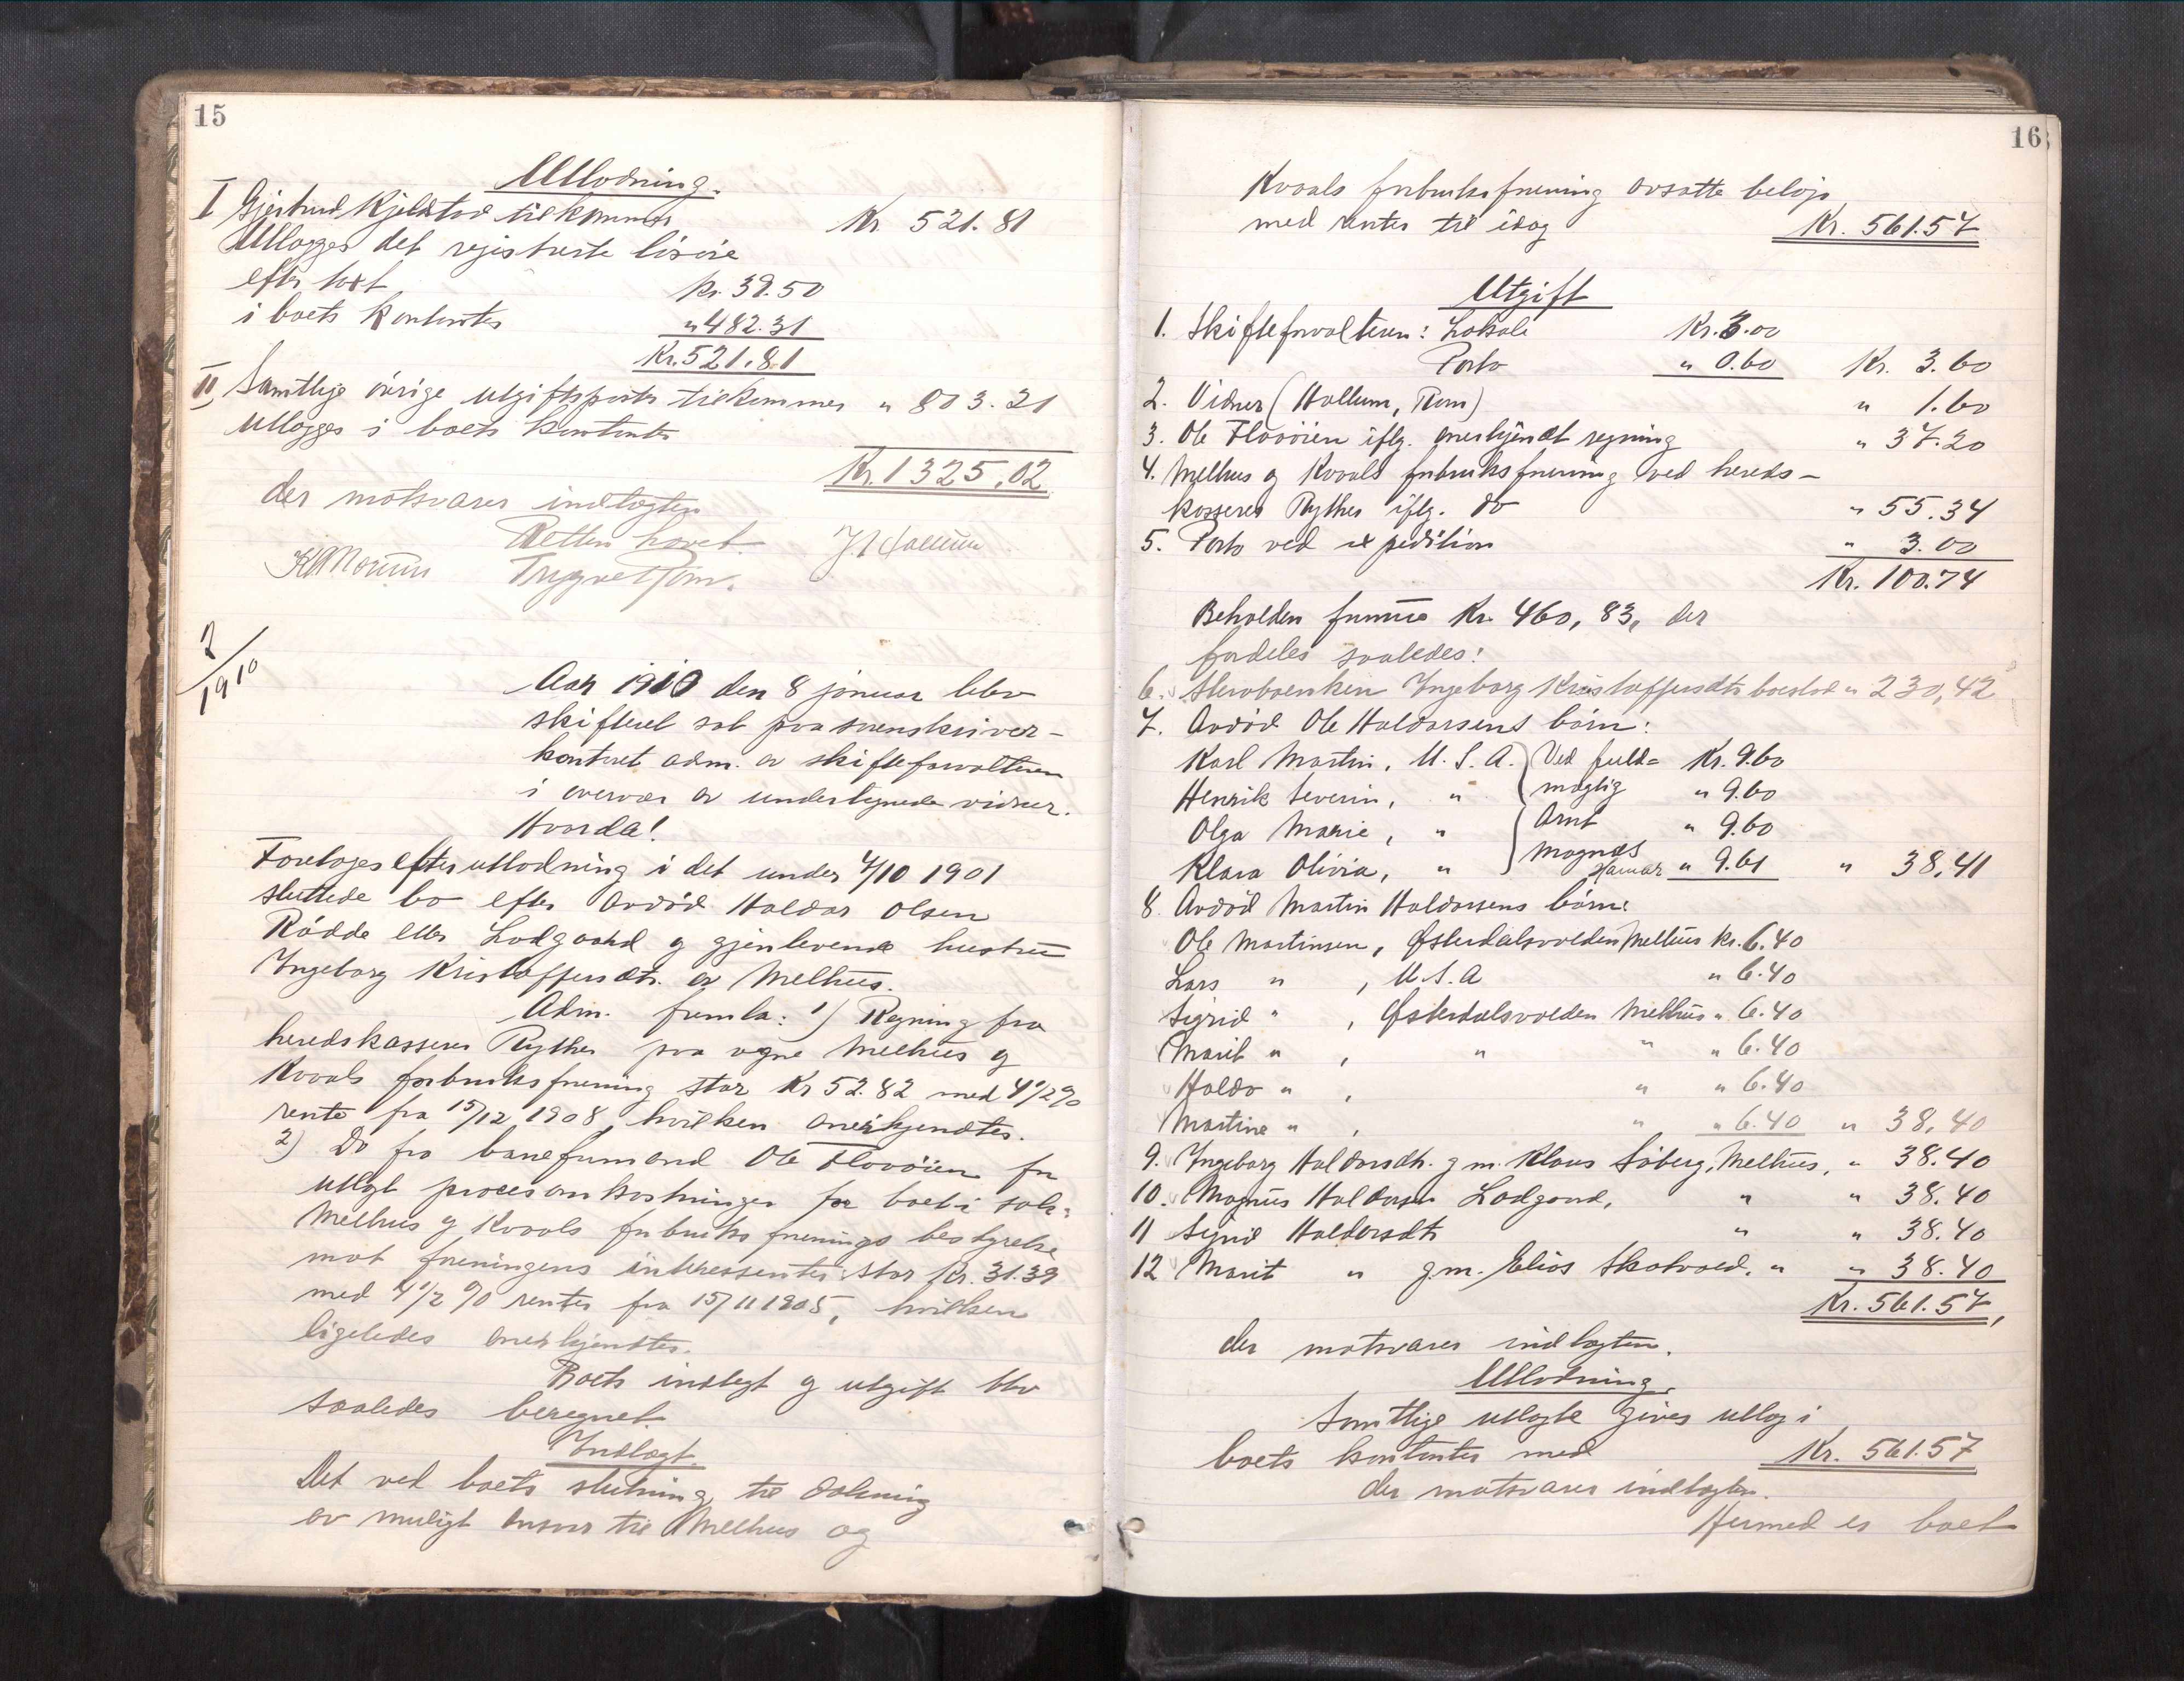 15
Utlodning.
I Gjertrud Kjelstad tilkommer Kr. 521.81
Utlægges det registrerte lösöre
efter taxt Kr. 39.50
i boets kontanter " 482.31
Kr. 521.81
II Samtlige övrige utgiftsposter tilkommer " 803.21
utlægges i boets kontanter
Kr. 1325,02
der motsvarer indtægten
Retten hævet.
Trygve Rom.
2/1910
Aar 1910 den 8 januar blev
skifteret sat paa sorenskriver-
kontoret adm. av skifteforvalteren
i overvær av undertegnede vidner.
Hvorda!
Foretoges efterutlodning i det under 4/10 1901
sluttede bo efter avdöd Haldor Olsen
Rödde eller Lodgaard og gjenlevende hustru
Ingeborg Kristoffersdtr. av Melhus.
Adm. fremla: 1) Regning fra
heredskasserer Ryther paa vegne Melhus og
Kvaals forbruksforening stor Kr 52.82 med 4 1/2 %
rente fra 15/12 1908, hvilken anerkjendtes.
2) Do fra baneformand Ole Flovöien for
utlagt procesomkostninger for boet i sak:
Melhus og Kvaals forbruksforenings bestyrelse
mot foreningens interessenter stor Kr. 31.39
med 4 1/2 % renter fra 15/11 1905, hvilken
ligeledes anerkjendtes.
Boets indtægt og utgift blev
saaledes beregnet.
Indtægt.
Det ved boets slutning til dækning
av muligt ansvar til Melhus og
16
Kvaals forbruksforening avsatte belöp
med renter til idag Kr. 561.57
Utgift
1. Skifteforvalteren: Lokale Kr. 3.00
Porto " 0.60 Kr. 3.60
2. Vidner (Hollum, Rom) " 1.60
3. Ole Flovöien iflg. anerkjendt regning " 37.20
4. Melhus og Kvaals forbruksforening ved hereds-
kasserer Ryther iflg. do " 55.34
5. Porto ved expedition " 3.00
Kr. 100.74
Beholden formue Kr. 460,83, der
fordeles saaledes:
6. Sterboenken Ingeborg Kristoffersdtr boeslod " 230,42
7. Avdöd Ole Haldorsens börn:
Karl Martin, U.S.A. Ved fuld= Kr. 9.60
Henrik Severin, " mægtig " 9.60
Olga Marie, " Arnt " 9.60
Klara Olivia, " Magnus Hamar " 9.61 " 38,41
8. Avdöd Martin Haldorsens börn:
Ole Martinsen, Østerdalsvolden Melhus Kr. 6.40
Lars " , U.S.A " 6.40
Sigrid " , Østerdalsvolden Melhus " 6.40
Marit " , " " " 6.40
Haldo " , " " 6.40
Martine " , " " 6.40 " 38,40
9. Ingeborg Haldorsdtr. g.m. Klaus Söberg, Melhus, " 38.40
10. Magnus Haldorsen Lodgaard, " " 38.40
11 Sigrid Haldorsdtr " " 38.40
12 Marit " g.m. Elias Skotvold. " " 38.40
Kr. 561.57,
der motsvarer indtægten.
Utlodning.
Samtlige utlagte gives utlæg i
boets kontanter med Kr. 561.57
der motsvarer indtægten.
Hermed er boet